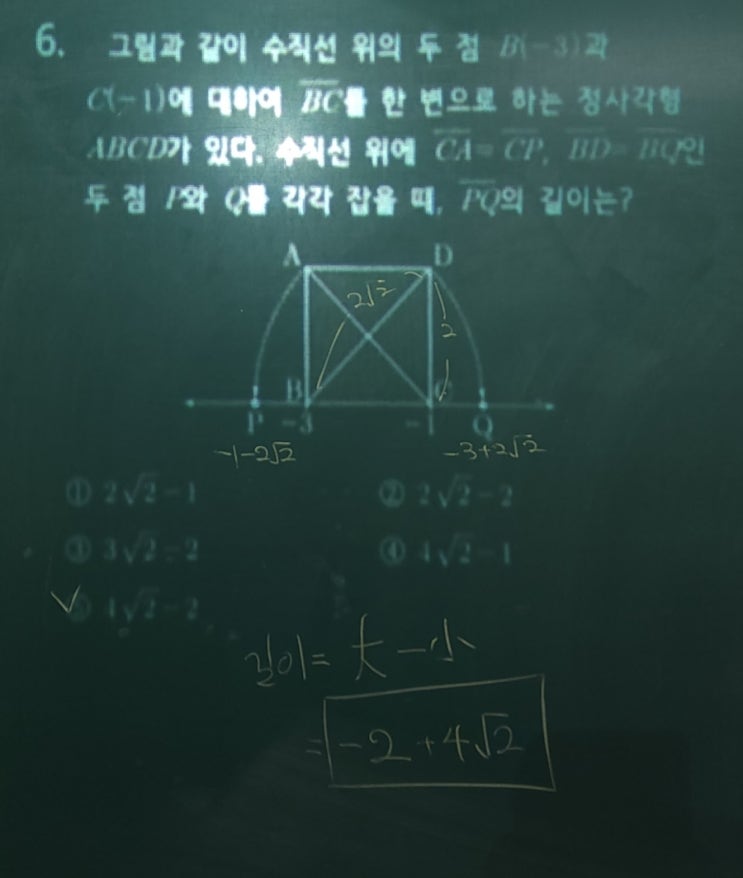 6. 그림과 같이 수직선 위의 두 점 B(-3)과
C(-1)에 대하여 BC를 한 변으로 하는 정사각형
ABCD가 있다. 수직선 위에 CA=CP, BD=BQ인
두 점 P와 Q를 각각 잡을 때, PQ의 길이는?
A D
2√2
2
B C
P -3 -1 Q
-1-2√2 -3+2√2
① 2√2-1 ② 2√2-2
③ 3√2-2 ④ 4√2-1
✓ 4√2-2
길이= 大-小
= -2+4√2